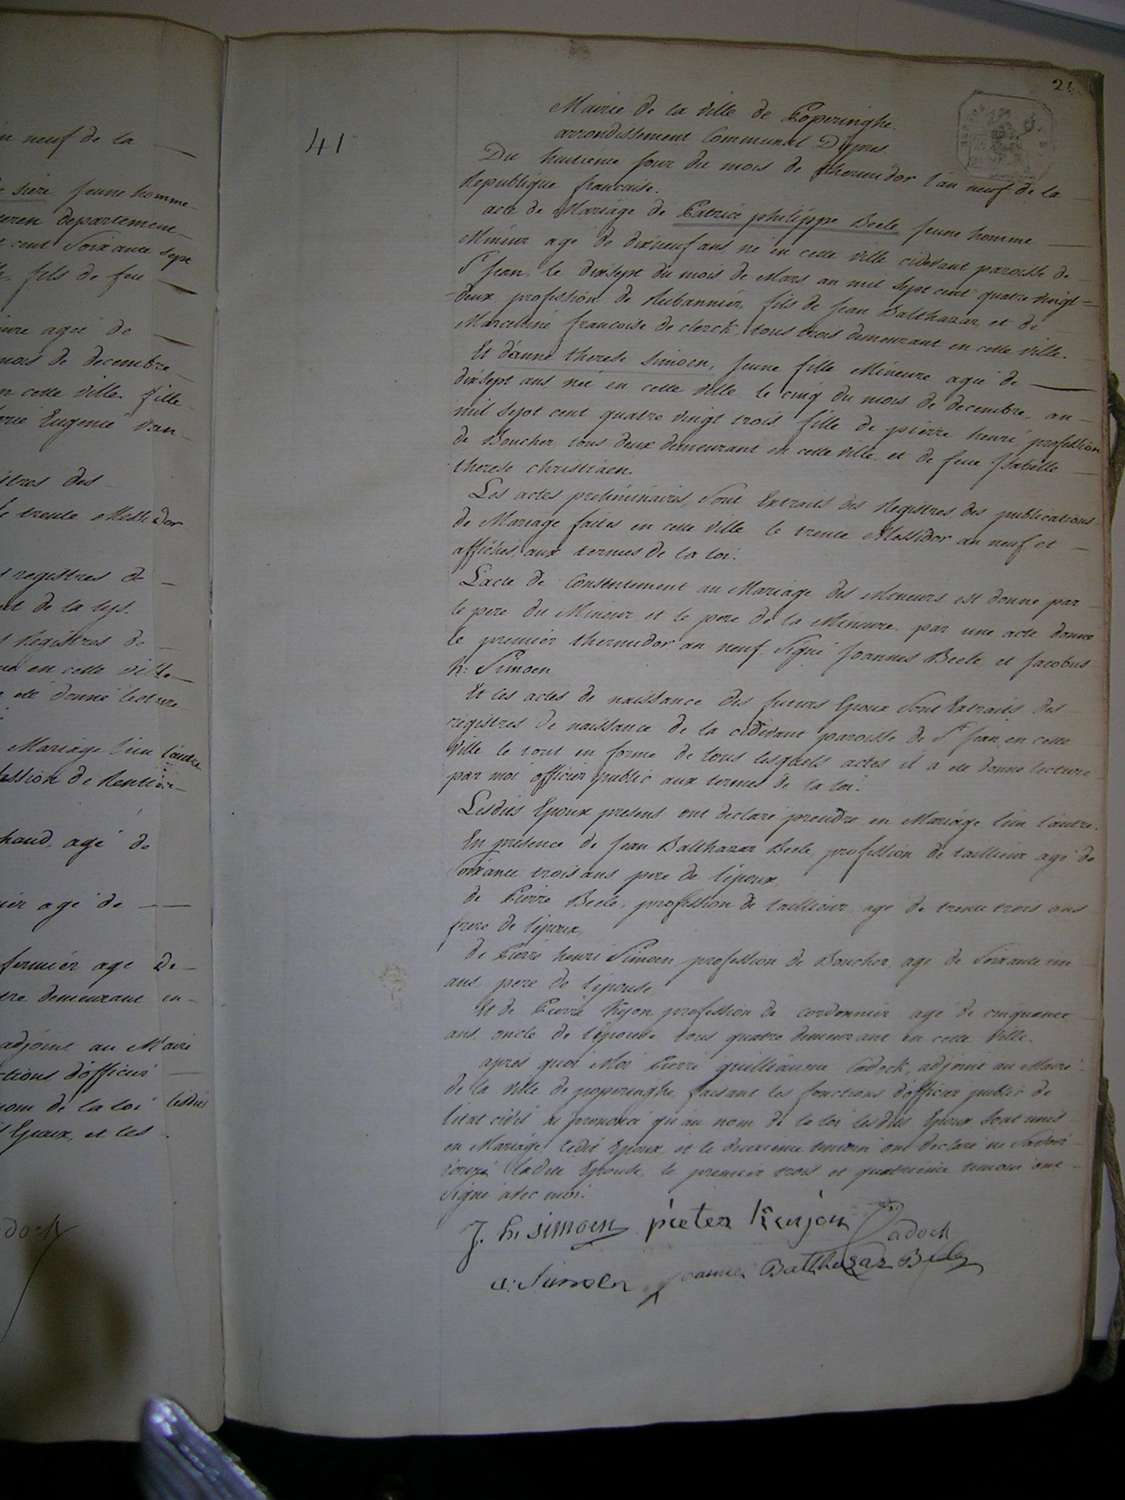 in neuf de la
siere jeune homme
departement
cent Soixante Sept
fils de feu
agé de
mois de decembre
en cette ville. fille
Marie Eugenie van
registres des
le trente Messidor
registres de
de la lys.
registres de
en cette ville
été donné lecture
Mariage l'un l'autre
profession de Rentier
agé de
agé de
fermier agé de
demeurant en
adjoint au Maire
fonctions d'officier
nom de la loi lesdits
Epoux, et les
21
41
Mairie de la ville de Poperinghe
arrondissement Communal D'ypres
Du huitieme jour du mois de thermidor l'an neuf de la
Republique francaise.
acte de Mariage de Patrice philippe Beele jeune homme
Mineur agé de dixneuf ans né en cette ville cidevant paroisse de
St Jean, le dixsept du mois de Mars an mil sept cent quatre vingt
deux profession de Rubannier, fils de Jean Balthazar et de
Marceline francoise de clerck, tous trois demeurant en cette ville.
Et d'anne therese Simoen, jeune fille Mineure agée de
dixsept ans née en cette ville le cinq du mois de decembre, an
mil sept cent quatre vingt trois fille de pierre henri, profession
de Boucher, tous deux demeurant en cette ville. et de feue Isabelle
therese christiaen.
Les actes preliminaires, sont Extraits des Registres des publications
de Mariage faites en cette ville le trente Messidor an neuf et
affichés aux termes de la loi.
L'acte de Consentement au Mariage des Mineurs est donné par
le pere du Mineur et le pere de la Mineure par une acte donné
le premier thermidor an neuf Signé Joannes Beele et Jacobus
h: Simoen
Et les actes de naissance des futurs Epoux sont Extraits des
registres de naissance de la cidevant paroisse de St Jean, en cette
ville le tout en forme de tous lesquels actes il a été donné lecture
par moi officier public aux termes de la loi.
Lesdits Epoux present ont declaré prendre en Mariage l'un l'autre.
En presence de Jean Balthazar Beele, profession de taillieur agé de
Soixante trois ans pere de l'époux,
de Pierre Beele, profession de taillieur agé de trente trois ans
frere de l'époux,
de Pierre henri Simoen profession de Boucher, agé de Soixante un
ans pere de l'épouse
Et de Pierre Kyon profession de cordonnier agé de cinquante
ans oncle de l'épouse tous quatre demeurant en cette ville.
apres quoi Moi Pierre guilleaume Cadock, adjoint au Maire
de la ville de poperinghe, faisant les fonctions d'officier public de
l'état civil ai prononcé qu'au nom de la loi lesdits Epoux sont unis
en Mariage, ledit Epoux et le deuxieme temoin ont declaré ne savoir
ladite Epouse, le premier trois et quatrieme temoin ont
Signé avec moi.
J. h. simoen pieter Kenjon Cadock
a: Simoen Joannes Balthazar Beele